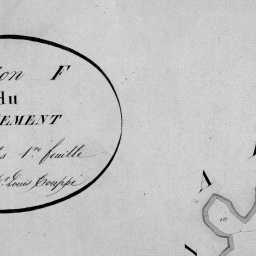 ion F
du
EMENT
1.re feuille
Louis Couppé
A